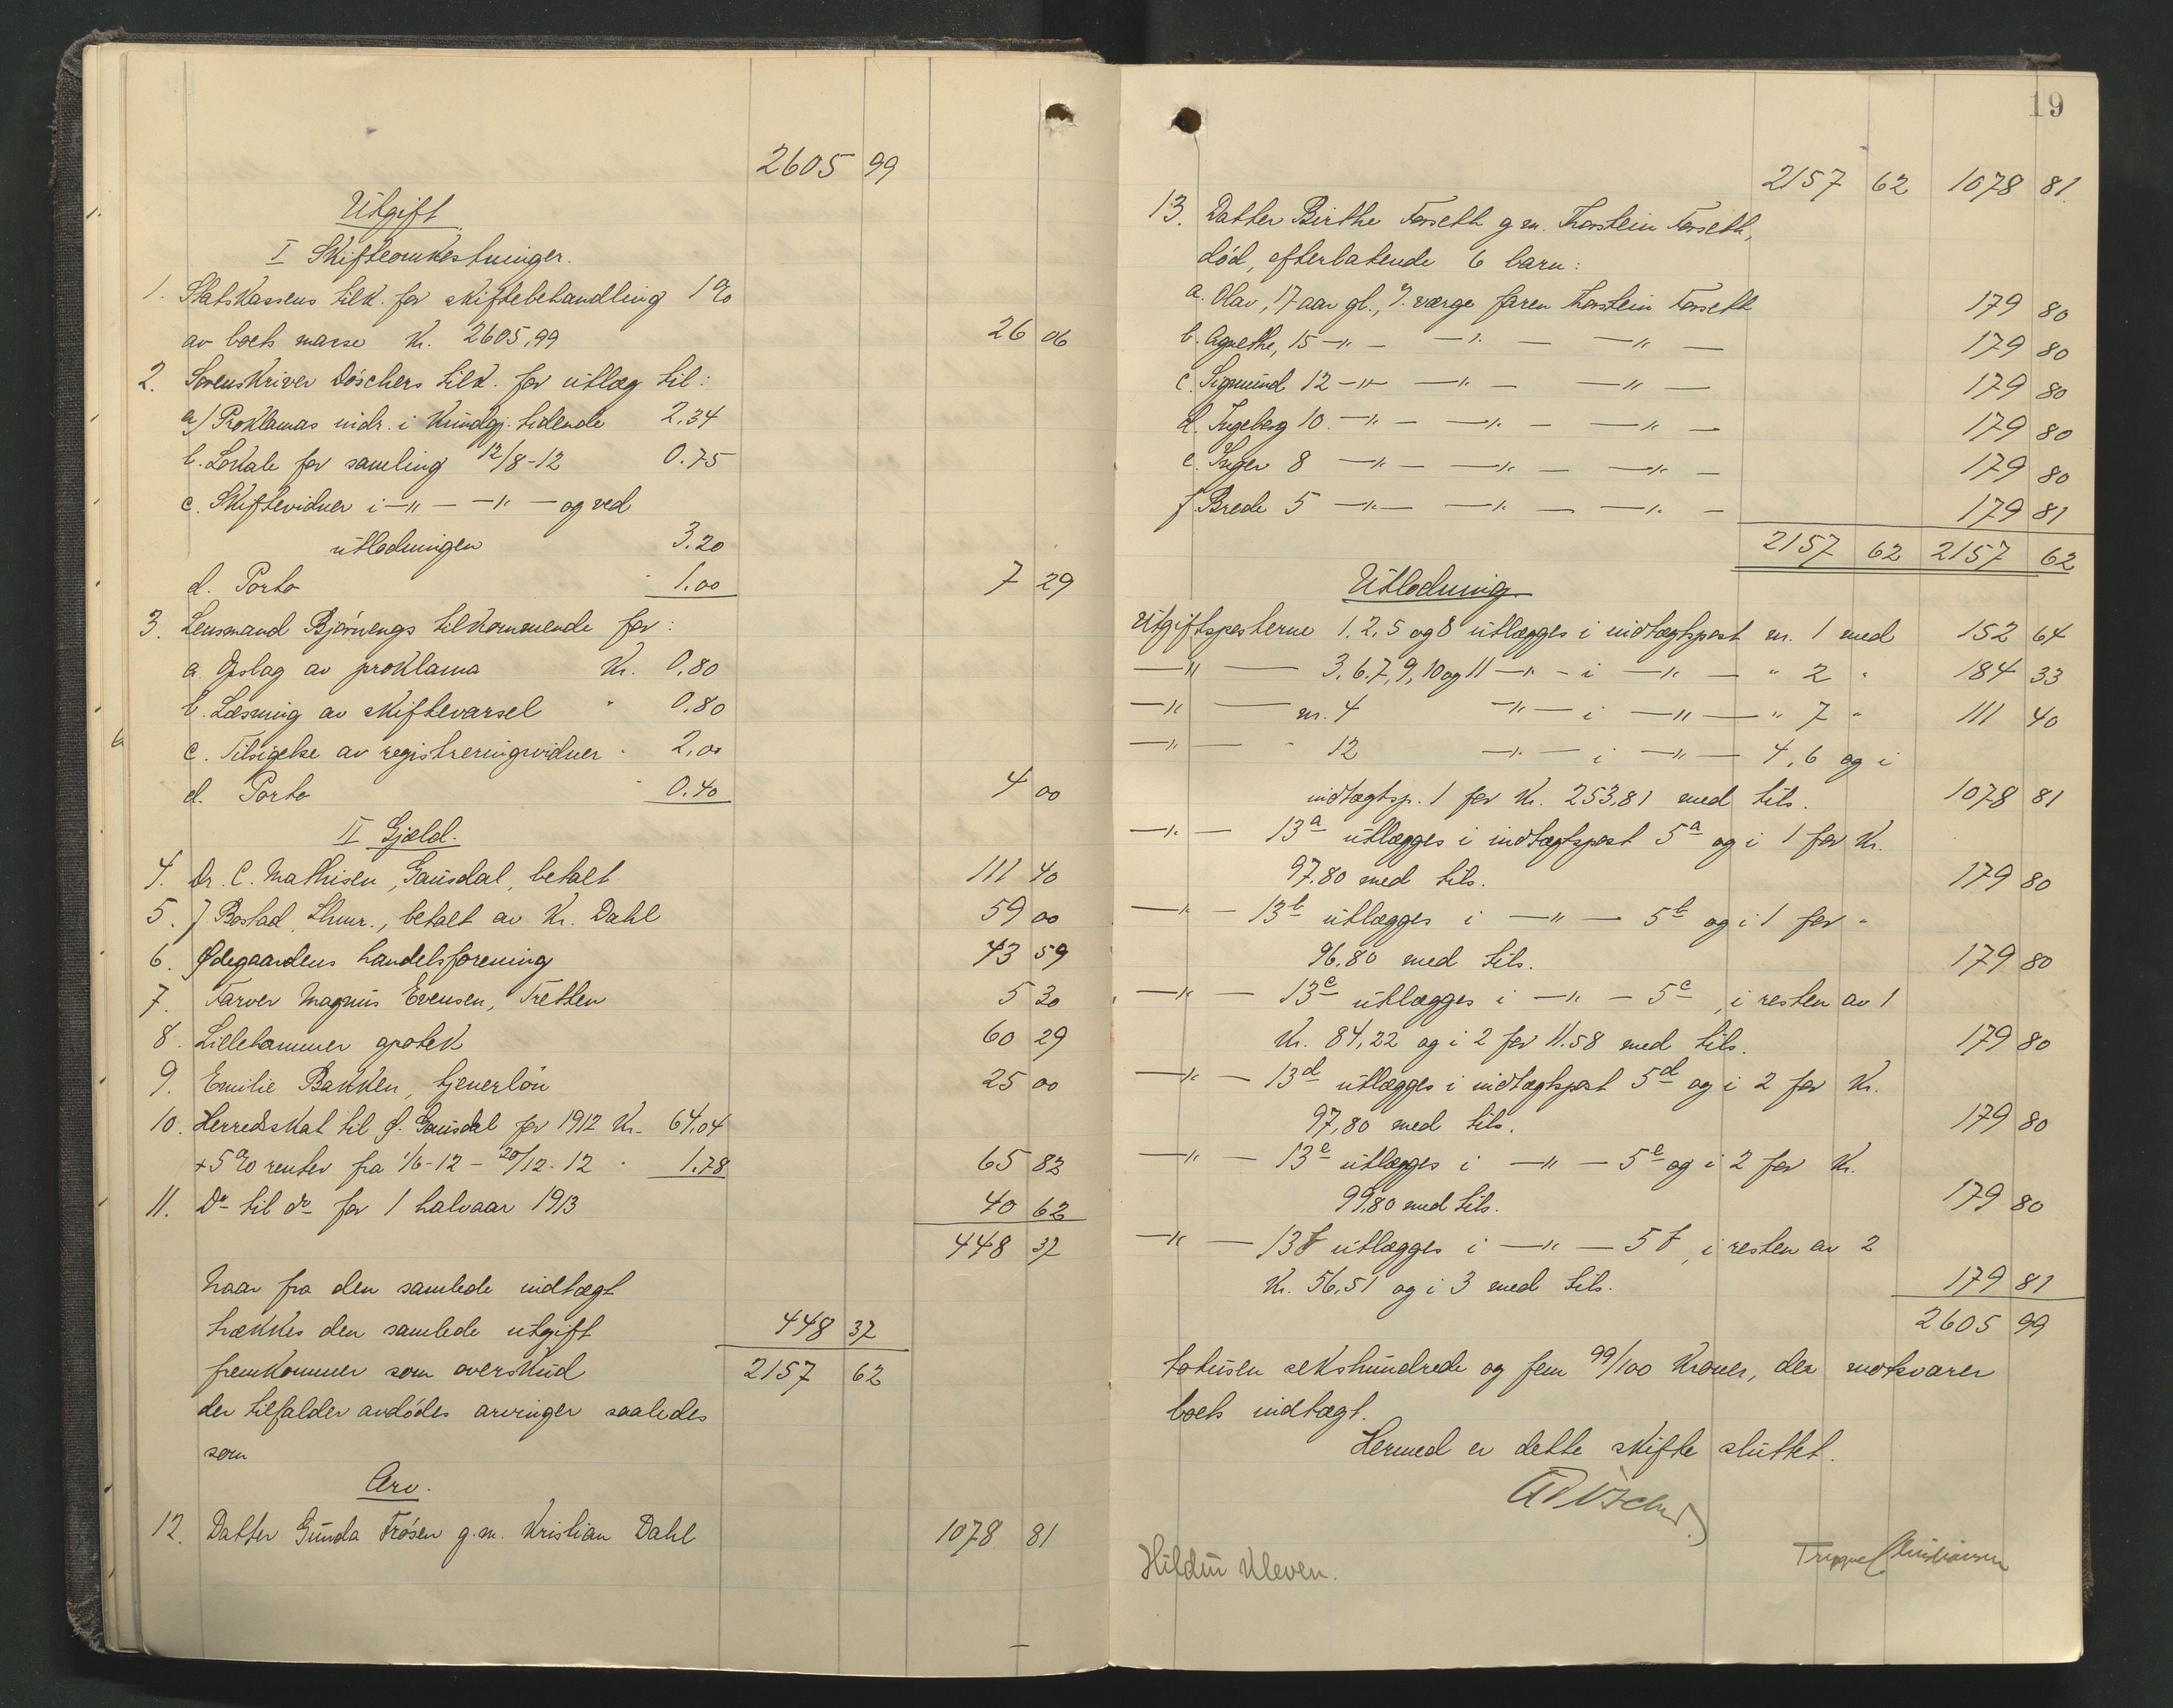 2605 99
Utgift
I Skifteomkostninger.
1. Statskassens tilk. for skiftebehandling 1 %
av boets masse Kr. 2605,99 26 06
2. Sorenskriver Döschers tilk. for utlæg til:
a) Proklamas indr. i Kundgj. tidende 2,34
b. Lokale for samling 12/8-12 0.75
c. Skiftevidner i —"— —"— og ved
utlodningen 3.20
d. Porto 1.00 7 29
3. Lensmand Bjørnengs tilkommende for:
a. Opslag av proklama Kr. 0,80
b. Læsning av skiftevarsel " 0.80
c. Tilsigelse av registreringsvidner " 2,00
d. Porto " 0.40 4 00
II Gjæld.
4. Dr. C. Mathisen, Gausdal, betalt 111 40
5. J. Bostad, Lhmr., betalt av Kr. Dahl 59 00
6. Ødegaardens handelsforening 43 59
7. Farver Magnus Evensen, Tretten 5 30
8. Lillehammer apotek 60 29
9. Emilie Bakken, tjenerløn 25 00
10. Herredskat til Ø. Gausdal for 1912 Kr. 64.04
+ 5 % renter fra 1/6-12 - 20/12-12 " 1.78 65 82
11. Do til do for 1 halvaar 1913 40 62
448 37
Naar fra den samlede indtægt
trækkes den samlede utgift 448 37
fremkommer som overskud 2157 62
der tilfalder avdødes arvinger saaledes
som
Arv.
12. Datter Gunda Frøsen g.m. Kristian Dahl 1078 81
19
2157 62 1078 81
13. Datter Birthe Forseth g.m. Thorstein Forseth,
död, efterlatende 6 barn:
a. Olav, 17 aar gl., %. værge faren Thorstein Forseth 179 80
b. Agnethe, 15 —"— —"— —"— 179 80
c. Sigmund 12 —"— —"— —"— 179 80
d. Ingeborg 10 —"— —"— —"— 179 80
e. Inger 8 —"— —"— —"— 179 80
f. Brede 5 —"— —"— —"— 179 81
2157 62 2157 62
Utlodning
Utgiftsposterne 1, 2, 5 og 8 utlægges i indtægtspost nr. 1 med 152 64
—"— 3, 6, 7, 9, 10 og 11 —"— i —"— " 2 " 184 33
—"— nr. 4 —"— i —"— " 7 " 111 40
—"— " 12 —"— i —"— 4, 6 og i
indtægtsp. 1 for Kr. 253,81 med tils. 1078 81
—"— 13a utlægges i indtægtspost 5a og i 1 for Kr.
97.80 med tils. 179 80
—"— 13b utlægges i —"— 5b og i 1 for "
96,80 med tils. 179 80
—"— 13c utlægges i —"— 5c, i resten av 1
Kr. 84,22 og i 2 for 11.58 med tils. 179 80
—"— 13d utlægges i indtægtspost 5d og i 2 for Kr.
97,80 med tils. 179 80
—"— 13e utlægges i —"— 5e og i 2 for Kr.
99,80 med tils. 179 80
—"— 13f utlægges i —"— 5f, i resten av 2
Kr. 56,51 og i 3 med tils. 179 81
2605 99
totusen sekshundrede og fem 99/100 Kroner, der motsvarer
boets indtægt.
Hermed er dette skifte sluttet.
Hildur Kleven.
Christiansen